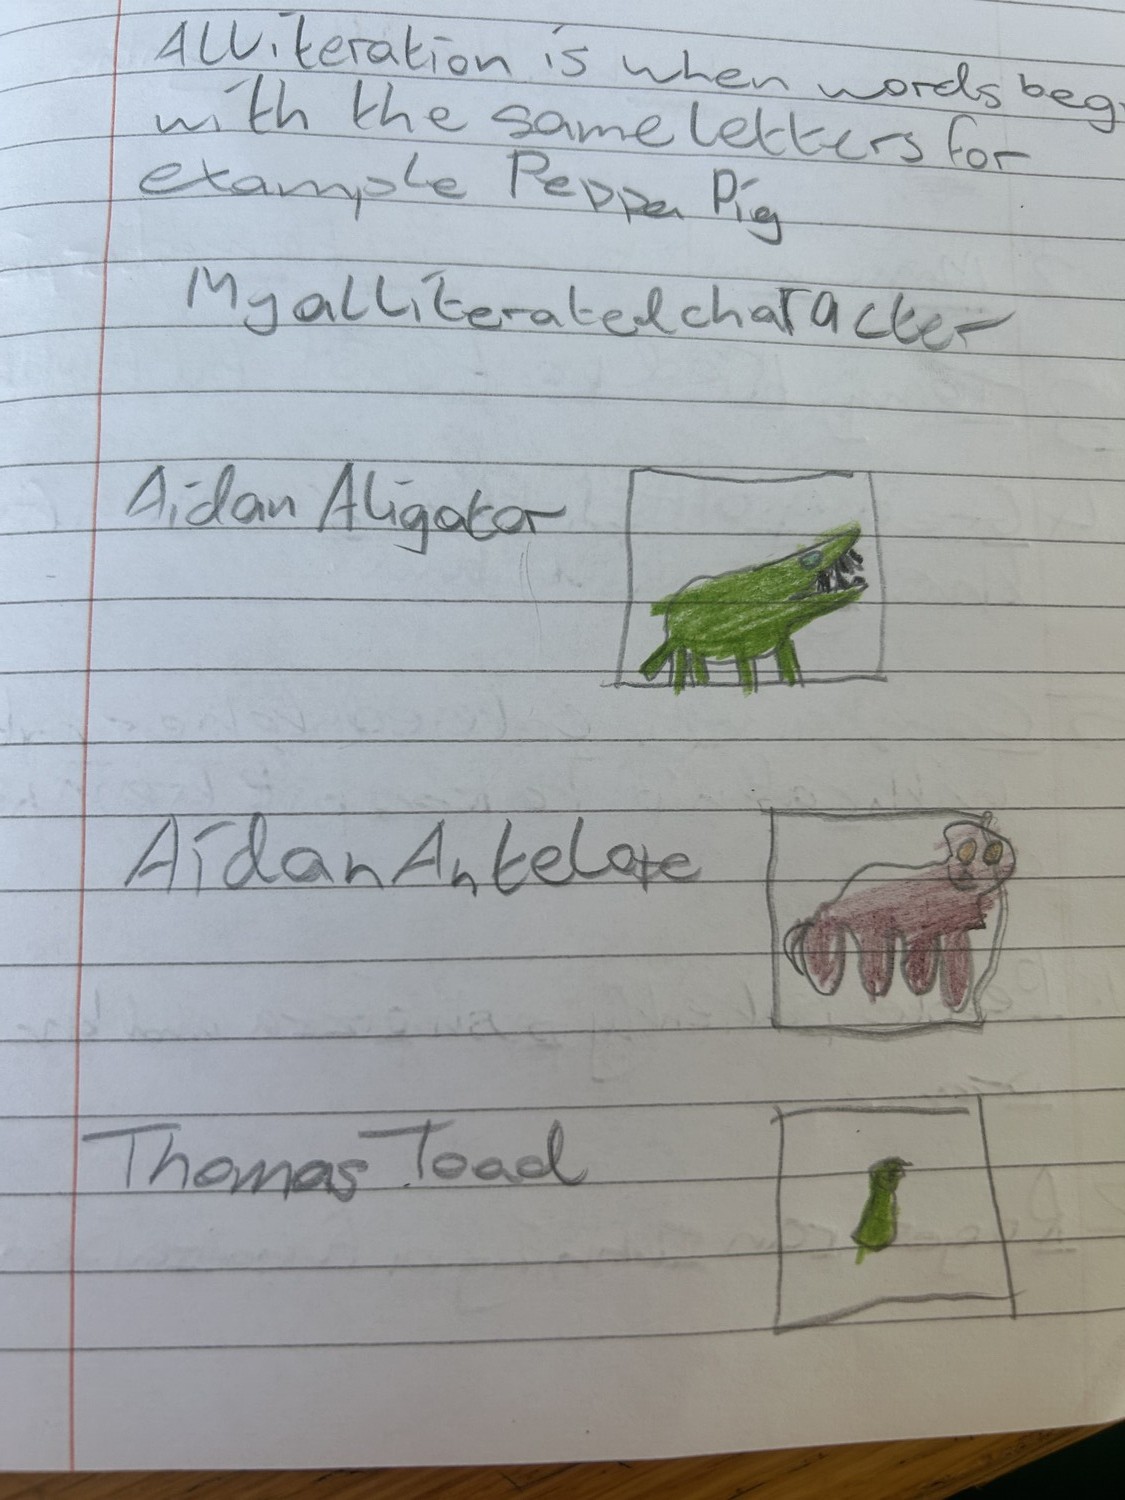 Alliteration is when words beg
with the same letters for
example Peppa Pig
My alliterated character
Aidan Aligator
Aidan Antelope
Thomas Toad